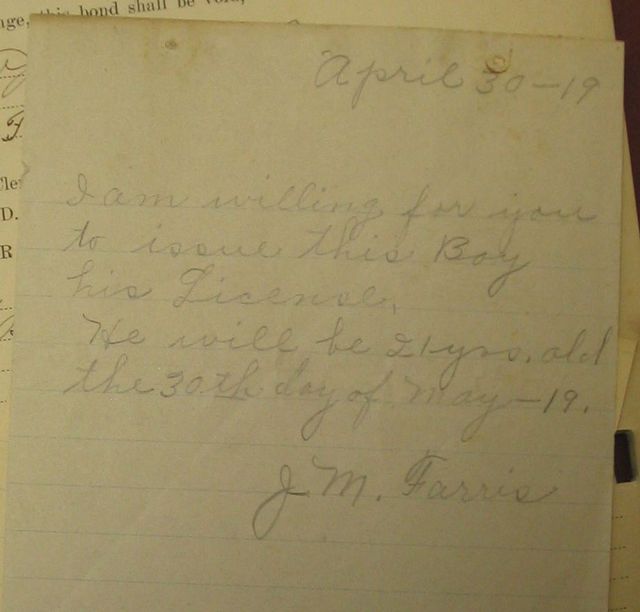 age, this bond shall be void,
April 30-19
I am willing for you
to issue this Boy
his License.
He will be 21 yrs. old
the 30th day of May-19.
J. M. Farris
D.
R